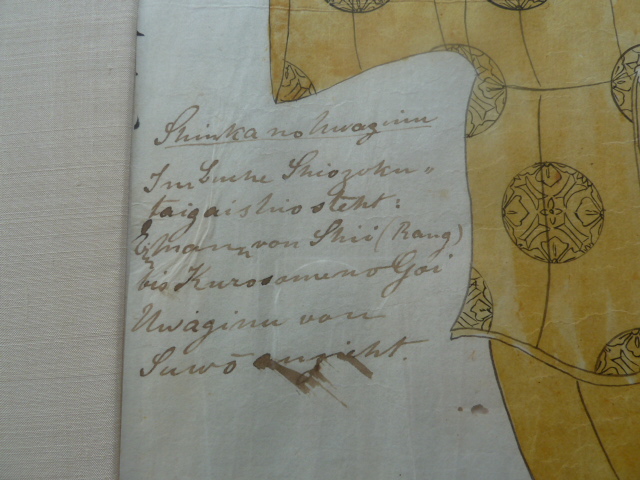 Shinka no Uwaginu
Im Buche Shiozoku-
taigaishio steht:
man von Shii (Rang)
bis Kurosome no Goi
Uwaginu von
Suwō anzieht.